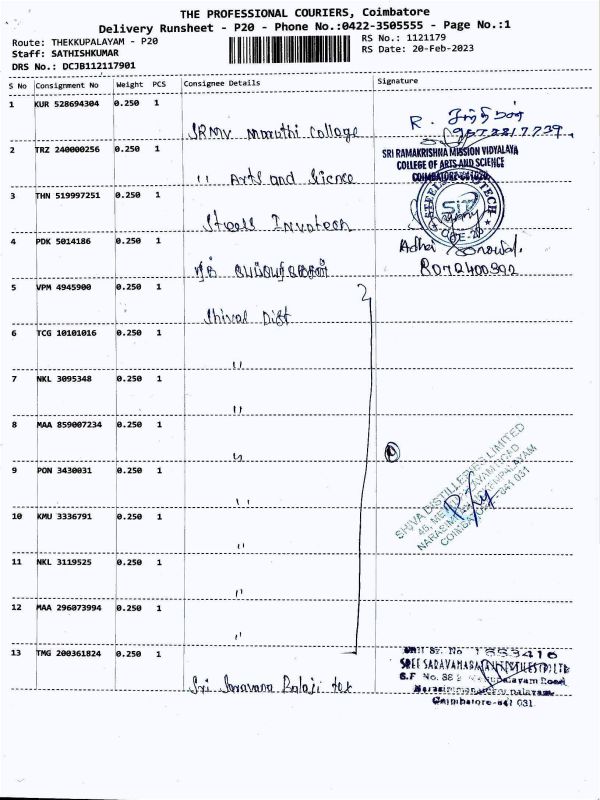 THE PROFESSIONAL COURIERS, Coimbatore
Delivery Runsheet - P20 - Phone No.:0422-3505555 - Page No.:1
Route: THEKKUPALAYAM - P20
RS No.: 1121179
Staff: SATHISHKUMAR
RS Date: 20-Feb-2023
DRS No.: DCJB112117901
S No Consignment No Weight PCS Consignee Details Signature
1 KUR 528694304 0.250 1
SRMV Maruthi College R.
2 TRZ 240000256 0.250 1
SRI RAMAKRISHNA MISSION VIDYALAYA
COLLEGE OF ARTS AND SCIENCE
COIMBATORE
" Arts and Science
3 THN 519997251 0.250 1
Steels Invotech
4 PDK 5014186 0.250 1
5 VPM 4945900 0.250 1
Shiva Dist
6 TCG 10101016 0.250 1
"
7 NKL 3095348 0.250 1
"
8 MAA 859007234 0.250 1
"
SHIVA DISTILLERIES LIMITED
9 PON 3430031 0.250 1
"
10 KMU 3336791 0.250 1
"
11 NKL 3119525 0.250 1
"
12 MAA 296073994 0.250 1
"
13 TMG 200361824 0.250 1
S.F No.
Sri Saravana Balaji tex
Coimbatore-641 031